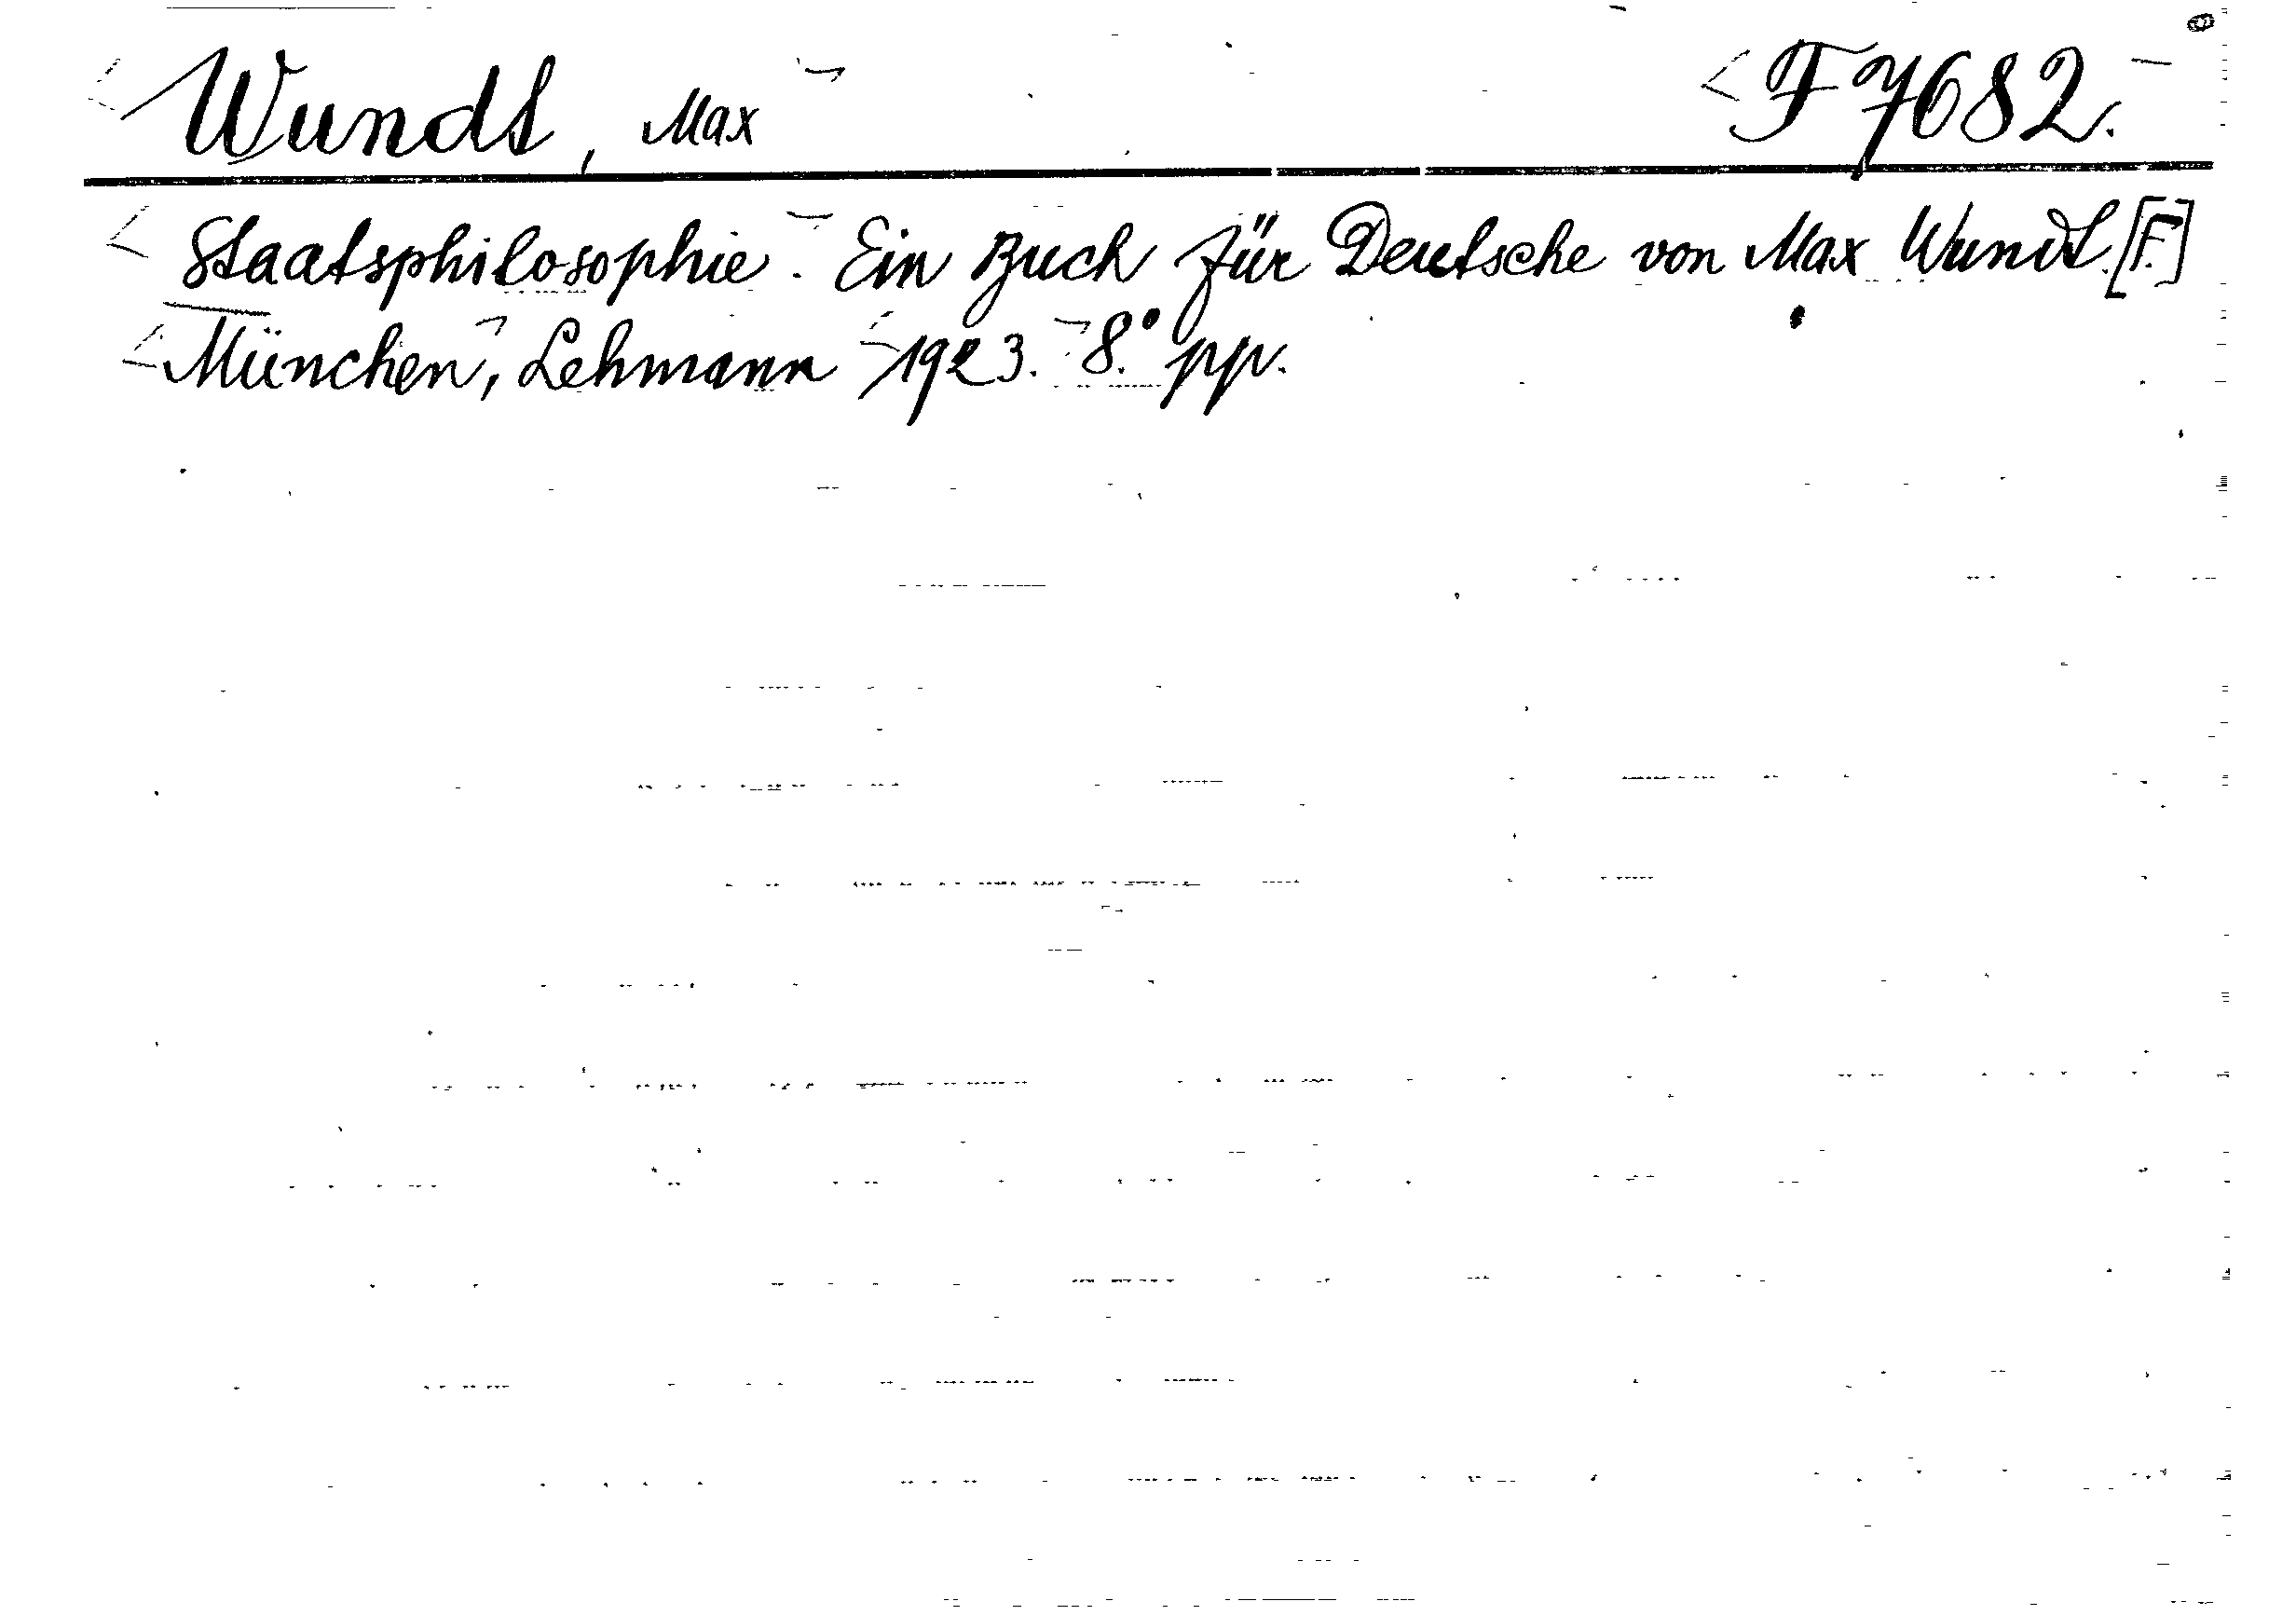 Wundt, Max F 7682.
Staatsphilosophie. Ein Buch für Deutsche von Max Wundt. [F.]
München, Lehmann 1923. 8.° pp.